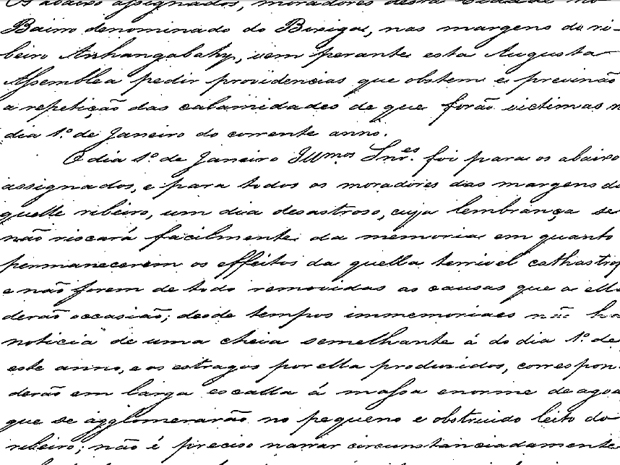 Os abaixo assignados, moradores desta Cidade no
Bairro denominado do Bexiga, nas margens do ri-
beiro Anhangabahy, vem perante esta Augusta
Assemblea pedir providencias que obstem e previnão
a repetição das calamidades de que forão victimas n
dia 1º de Janeiro do corrente anno.
O dia 1º de Janeiro Illmos Snres. foi para os abaixo
assignados, e para todos os moradores das margens da
quelle ribeiro, um dia desastroso, cuja lembrança se
não riscará facilmente da memoria em quanto
permanecerem os effeitos da quella terrivel cathastrop
e não forem de todo removidas as causas que a ella
derão occasião; desde tempos immemoriaes não ha
noticia de uma cheia semelhante á do dia 1º de
este anno, e os estragos por ella produsidos, correspon
derão em larga escalla á massa enorme de agoa
que se agglomerarão no pequeno e obstruido leito do
ribeiro; não é preciso narrar circunstanciadamente